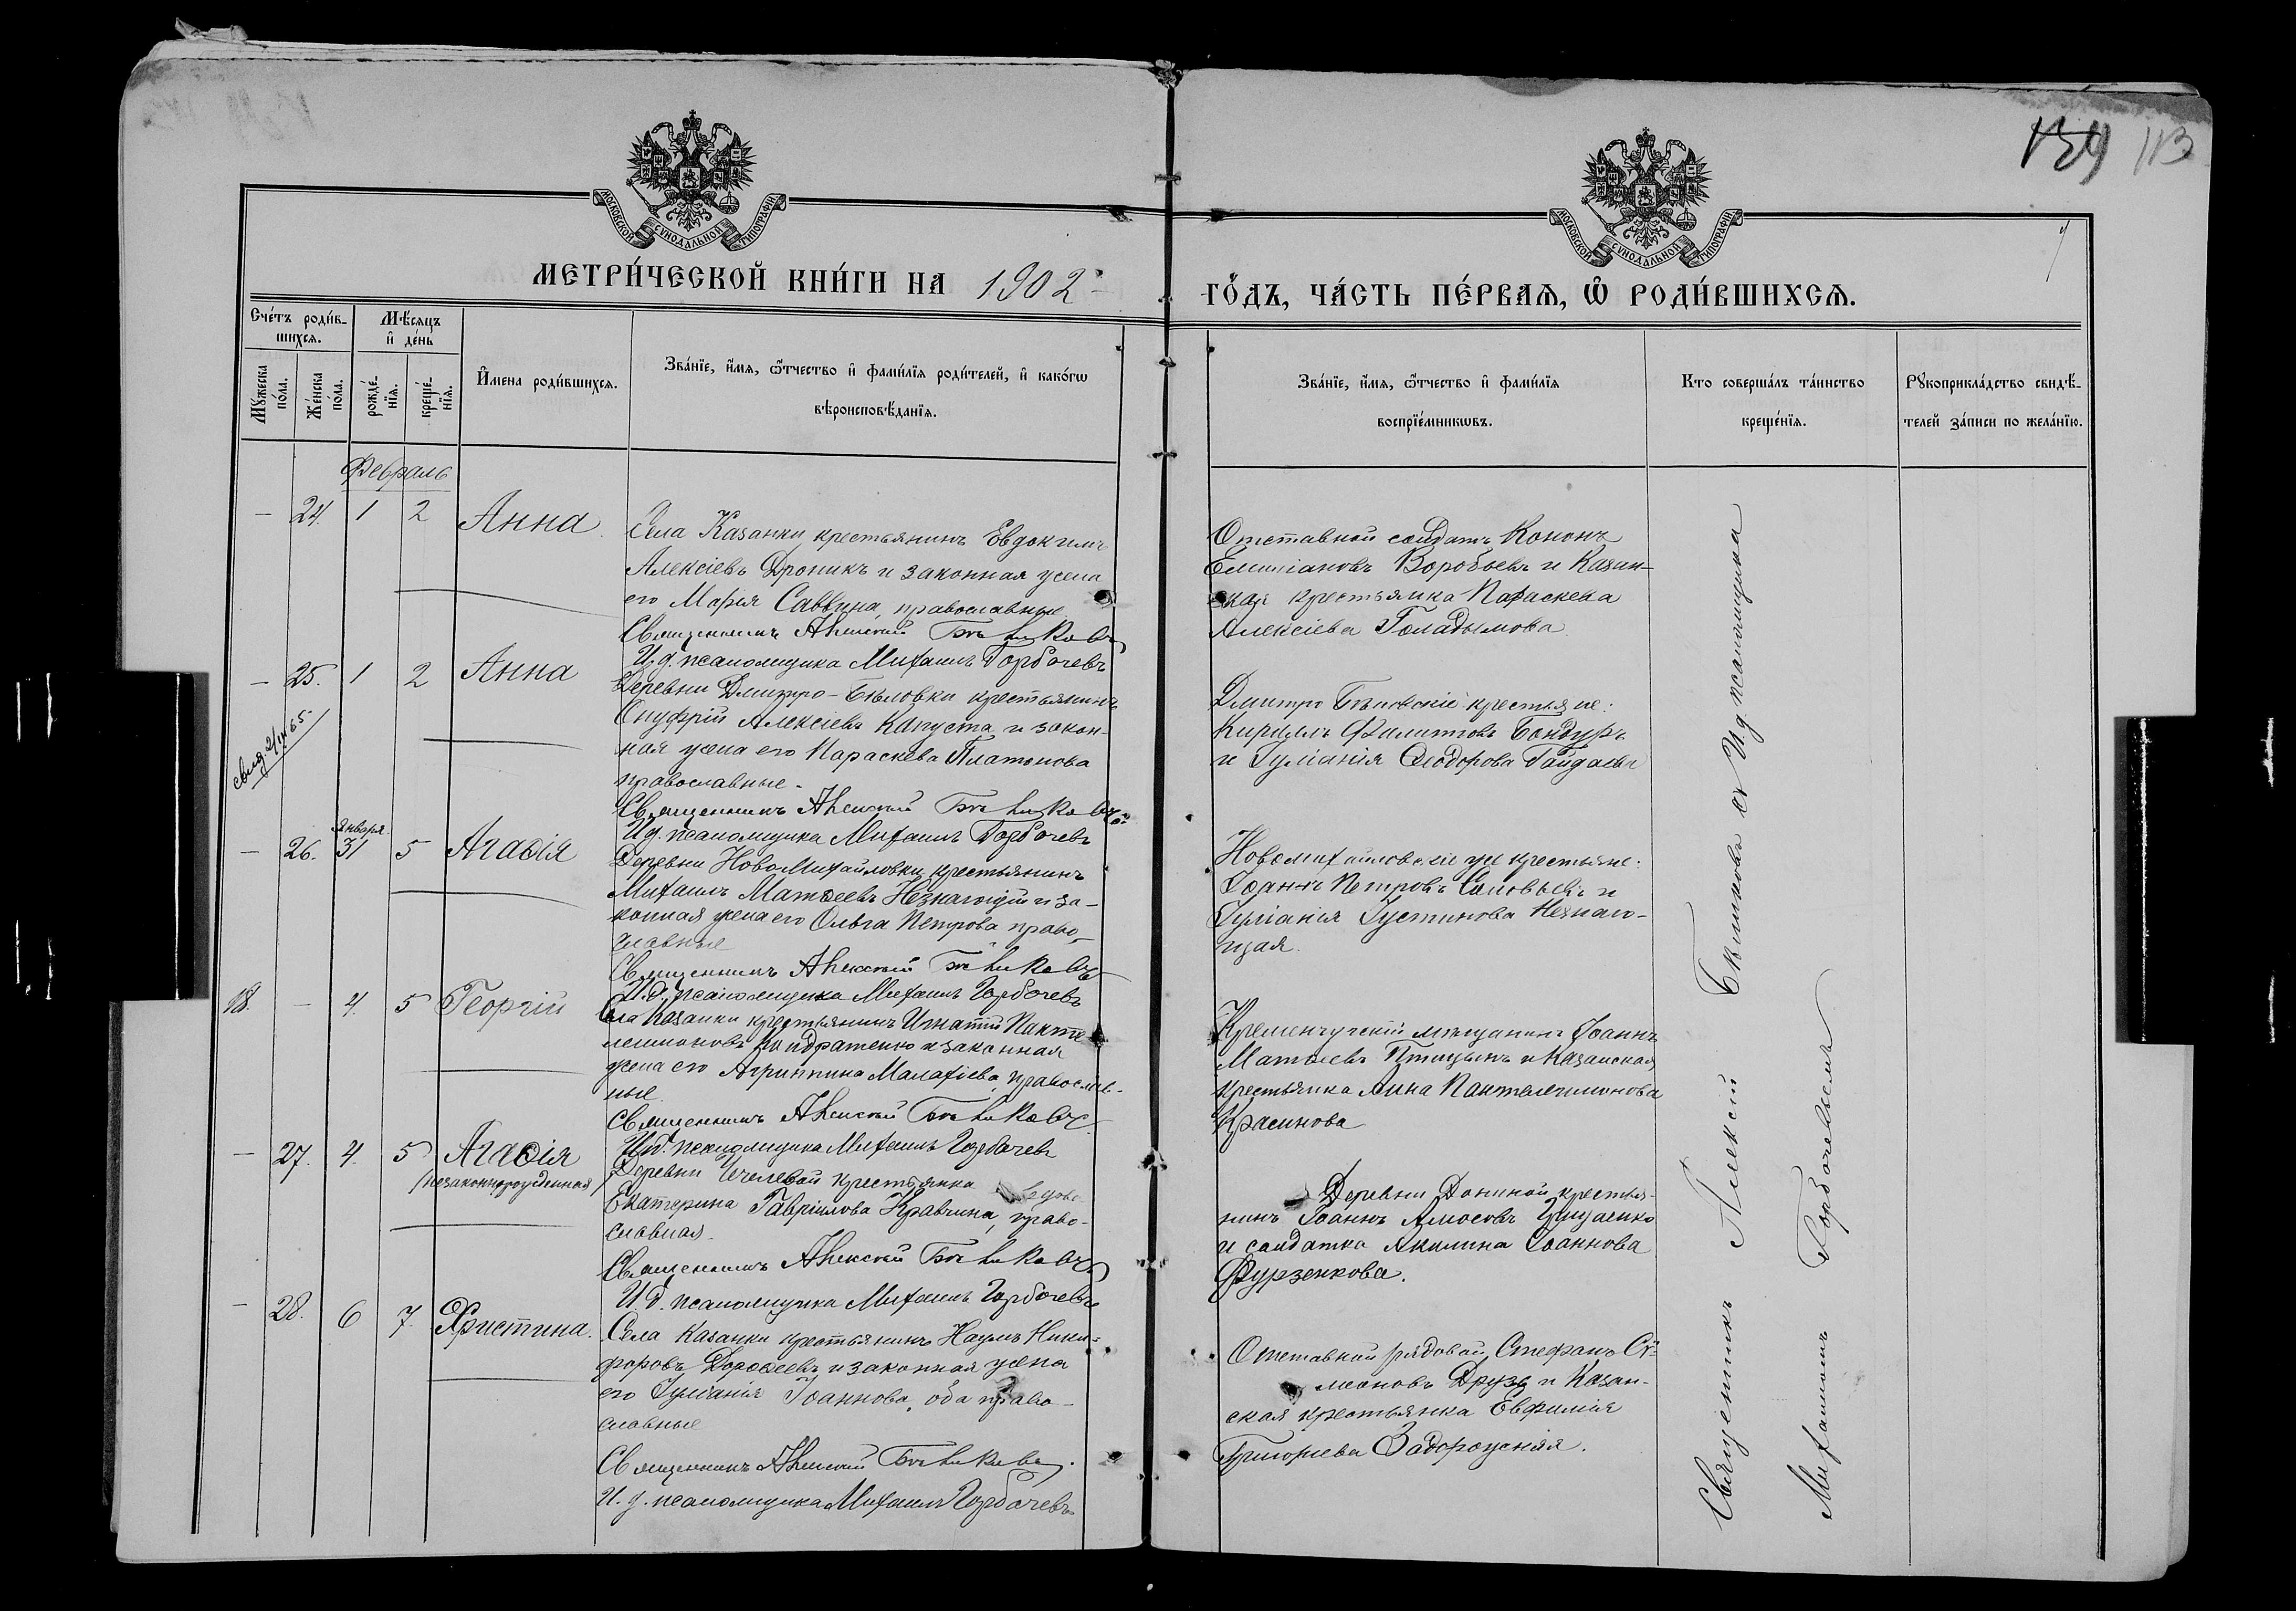 134 113
МОСКОВСКОЙ СУНОДАЛЬНОЙ ТИПОГРАФІИ
МОСКОВСКОЙ СУНОДАЛЬНОЙ ТИПОГРАФІИ
МЕТРИ́ЧЕСКОЙ КНИ́ГИ НА 1902
ГО́ДЪ, ЧА́СТЬ ПЕ́РВАѦ, Ѡ҆ РОДИ́ВШИХСѦ.
Сче́тъ роди́вшихсѧ.
Мꙋ́жеска по́ла.
Же́нска по́ла.
Мѣ́сѧцъ и҆ де́нь
рожде́нїѧ.
креще́нїѧ.
И҆мена роди́вшихсѧ.
Зва́нїе, и҆́мѧ, ѻ҆́тчество и҆ фами́лїѧ роди́телей, и҆ како́гѡ
вѣроисповѣ́данїѧ.
Зва́нїе, и҆́мѧ, ѻ҆́тчество и҆ фами́лїѧ
воспрїе́мникѡвъ.
Кто соверша́лъ та́инство
креще́нїѧ.
Рꙋкоприкла́дство свидѣ́-
телей за́писи по жела́нїю.
Февраль
— 24. 1 2 Анна
Села Казанки крестьянинъ Евдокимъ
Алексіевъ Дроникъ и законная жена
его Марія Саввина православные
Священникъ Алексій Бѣликовъ
И. д. псаломщика Михаилъ Горбачевъ
Отставной солдатъ Кононъ
Емиліановъ Воробьевъ и Казан-
ская крестьянка Параскева
Алексіева
— 25. 1 2 Анна
Деревни Дмитро-Бѣловки крестьянинъ
Онуфрій Алексіевъ Капуста и закон-
ная жена его Параскева Платонова
православные.
Священникъ Алексій Бѣликовъ
И. д. псаломщика Михаилъ Горбачевъ
Дмитро Бѣловскіе крестьяне:
Кириллъ Филипповъ Бондурь
и Гуліанія Ѳеодорова
свид
— 26. января 31 5 Агаѳія
Деревни НовоМихайловки крестьянинъ
Михаилъ Матѳеевъ Незнающій и за-
конная жена его Ольга Петрова право-
славные
Священникъ Алексій Бѣликовъ
И. д. псаломщика Михаилъ Горбачевъ
Новомихайловскіе же крестьяне:
Іоаннъ Петровъ Соловьевъ и
Іуліанія Іустинова Незнаю-
щая.
18. — 4. 5 Георгій
Села Казанки крестьянинъ Игнатій Панте-
леимоновъ Кондратенко и законная
жена его Агриппина Малахіева, православ-
ные.
Священникъ Алексій Бѣликовъ
И. д. псаломщика Михаилъ Горбачевъ
Кременчугскій мѣщанинъ Іоаннъ
Матѳеевъ Птицынъ и Казанская
крестьянка Анна Пантелеимонова
Красинова
— 27. 4. 5 Агаѳія
/незаконнорожденная/
Деревни крестьянка
Екатерина Гавріилова Кравчина, право-
славная.
Священникъ Алексій Бѣликовъ
И. д. псаломщика Михаилъ Горбачевъ
Деревни Дониной крестья-
нинъ Іоаннъ Амосовъ Грищенко
и солдатка Акилина Іоаннова
Фурзенкова.
— 28. 6 7. Христина.
Села Казанки крестьянинъ Наумъ Ники-
форовъ Дороѳеевъ и законная жена
его Іуліанія Іоаннова, оба право-
славные
Священникъ Алексій Бѣликовъ.
И. д. псаломщика Михаилъ Горбачевъ
Отставной рядовой Стефанъ Сѵ-
меоновъ Друзь и Казан-
ская крестьянка Евфимія
Григорьева Задорожняя.
Священникъ Алексій Бѣликовъ съ И д псаломщика
Михаиломъ Горбачевымъ